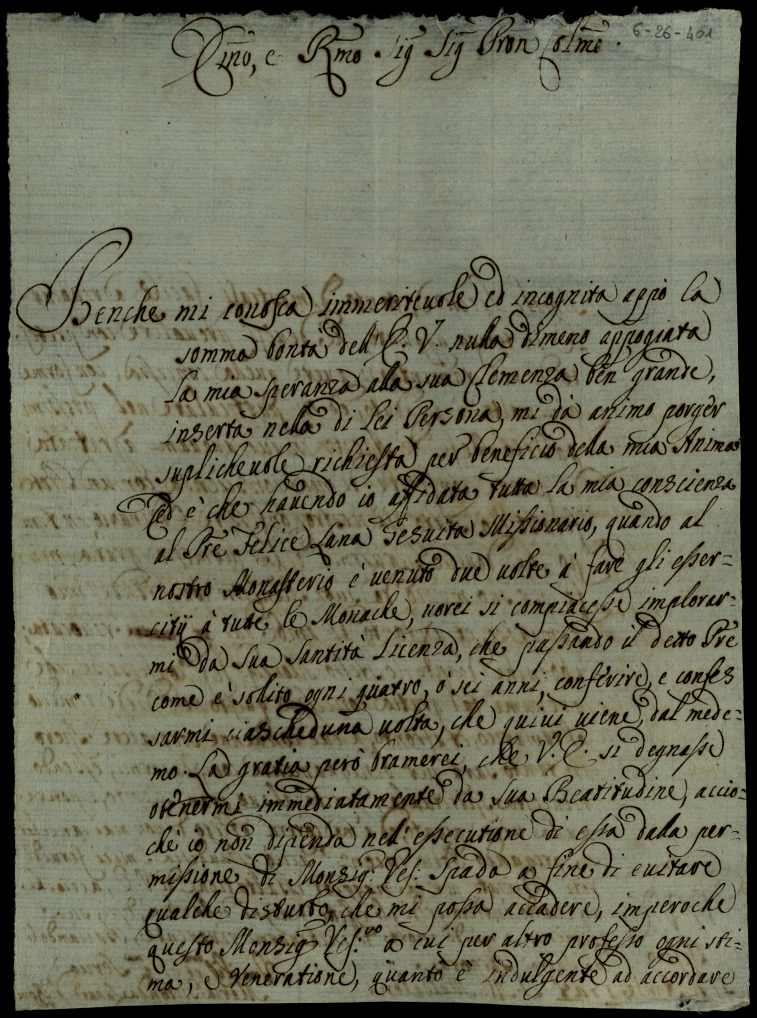 6-26-401
Emo, e Rmo Sig Sig Pron Colmo.
Benche mi conosca immeritevole ed incognita appo la
somma bontà dell'E. V. nulla dimeno appogiata
la mia speranza alla sua Clemenza ben grande,
inserta nella di Lei Persona, mi dà animo porger
suplichevole richiesta per beneficio della mia Anima
ed è che havendo io affidata tutta la mia conscienza
al Pre Felice Lana Gesuita Missionario, quando al
nostro Monasterio è venuto due volte à fare gli esser=
citij à tutte le Monache, vorei si compiacesse implorar=
mi da Sua Santità Licenza, che passando il detto Pre
come è solito ogni quatro, ò sei anni, conferire, e confes
sarmi ciascheduna volta, che quivi viene, dal mede=
mo. La gratia però bramerei, che V. E. si degnasse
otenermi immediatamente da Sua Beatitudine, accio=
chè io non dipenda nell'essecutione di essa dalla per=
missione di Monsig: Ves: Spada a fine di evitare
qualche disturbo, che mi possa accadere, imperoche
questo Monsig Ves:vo a cui per altro professo ogni sti=
ma, e Veneratione, quanto è indulgente ad accordare